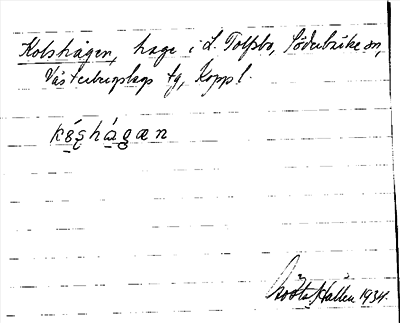 Kolshågen, hage i L. Tolfsbo, Söderbärke sn,
Västerbergslags tg, Koppl.
késhágæn
Gösta Hallén 1934.